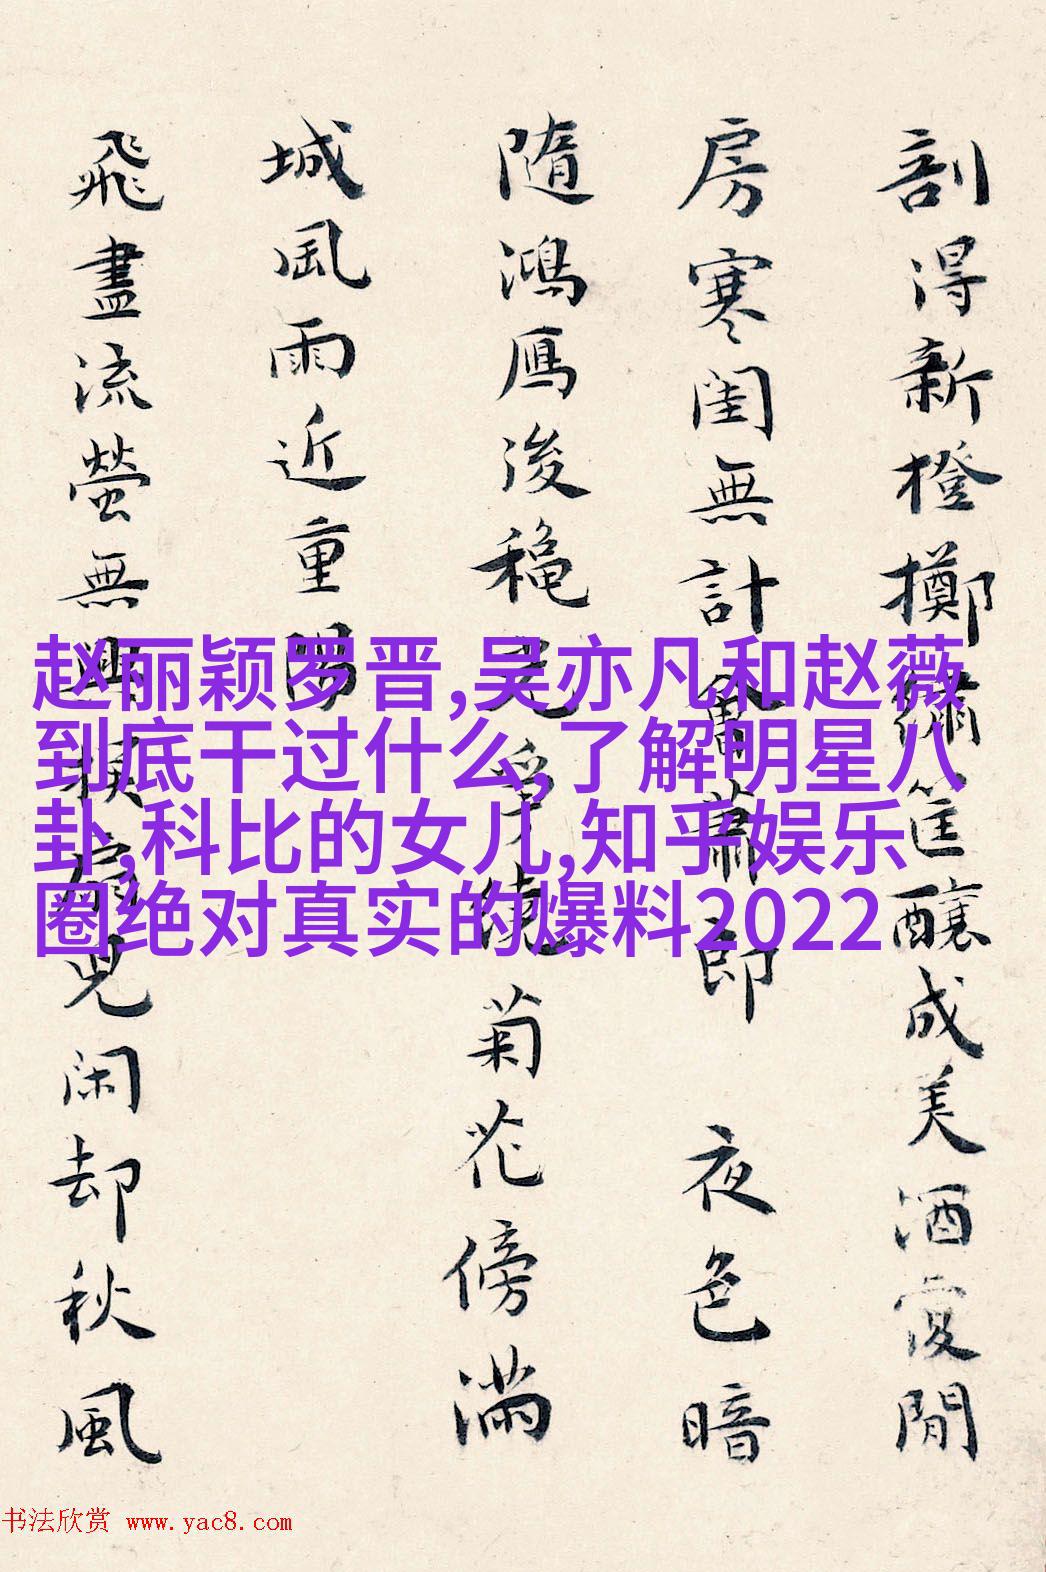 剖得新橙擲繡筐釀成美酒閒
房寒閨無計留蕭郎 夜色暗
隨鴻鴈後穐光爭繞菊花傍滿
城風雨近重陽
飛盡流螢無賴扇兒闲却秋風
赵丽颖罗晋,吴亦凡和赵薇
到底干过什么,了解明星八
卦,科比的女儿,知乎娱乐
圈绝对真实的爆料2022
书法欣赏 www.yac8.com